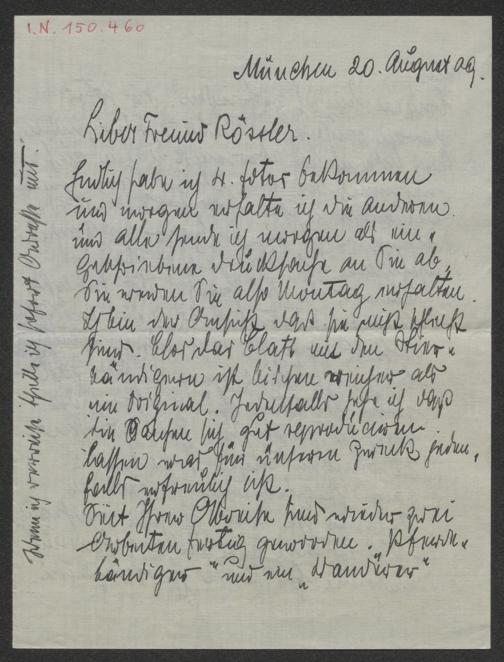 I.N. 150.460
München 20. August 09.
Lieber Freund Rössler.
Endlich habe ich 4. Fotos bekommen
und morgen erhalte ich die anderen.
und alle sende ich morgen als ein-
geschriebene Drucksache an Sie ab,
Sie werden Sie also Montag erhalten.
Ich bin der Ansicht daß sie nicht schlecht
sind. Blos das Blatt mit den Stier-
bändigern ist bischen weicher als
im Original. Jedenfalls sehe ich daß
die Sachen sich gut reproducieren
lassen was für unseren Zweck jeden-
falls erfreulich ist.
Seit Ihrer Abreise sind wieder zwei
Arbeiten fertig geworden. Pferde-
bändiger" und ein „Wanderer"
Wenn ich verreise theile ich sofort Adresse mit.